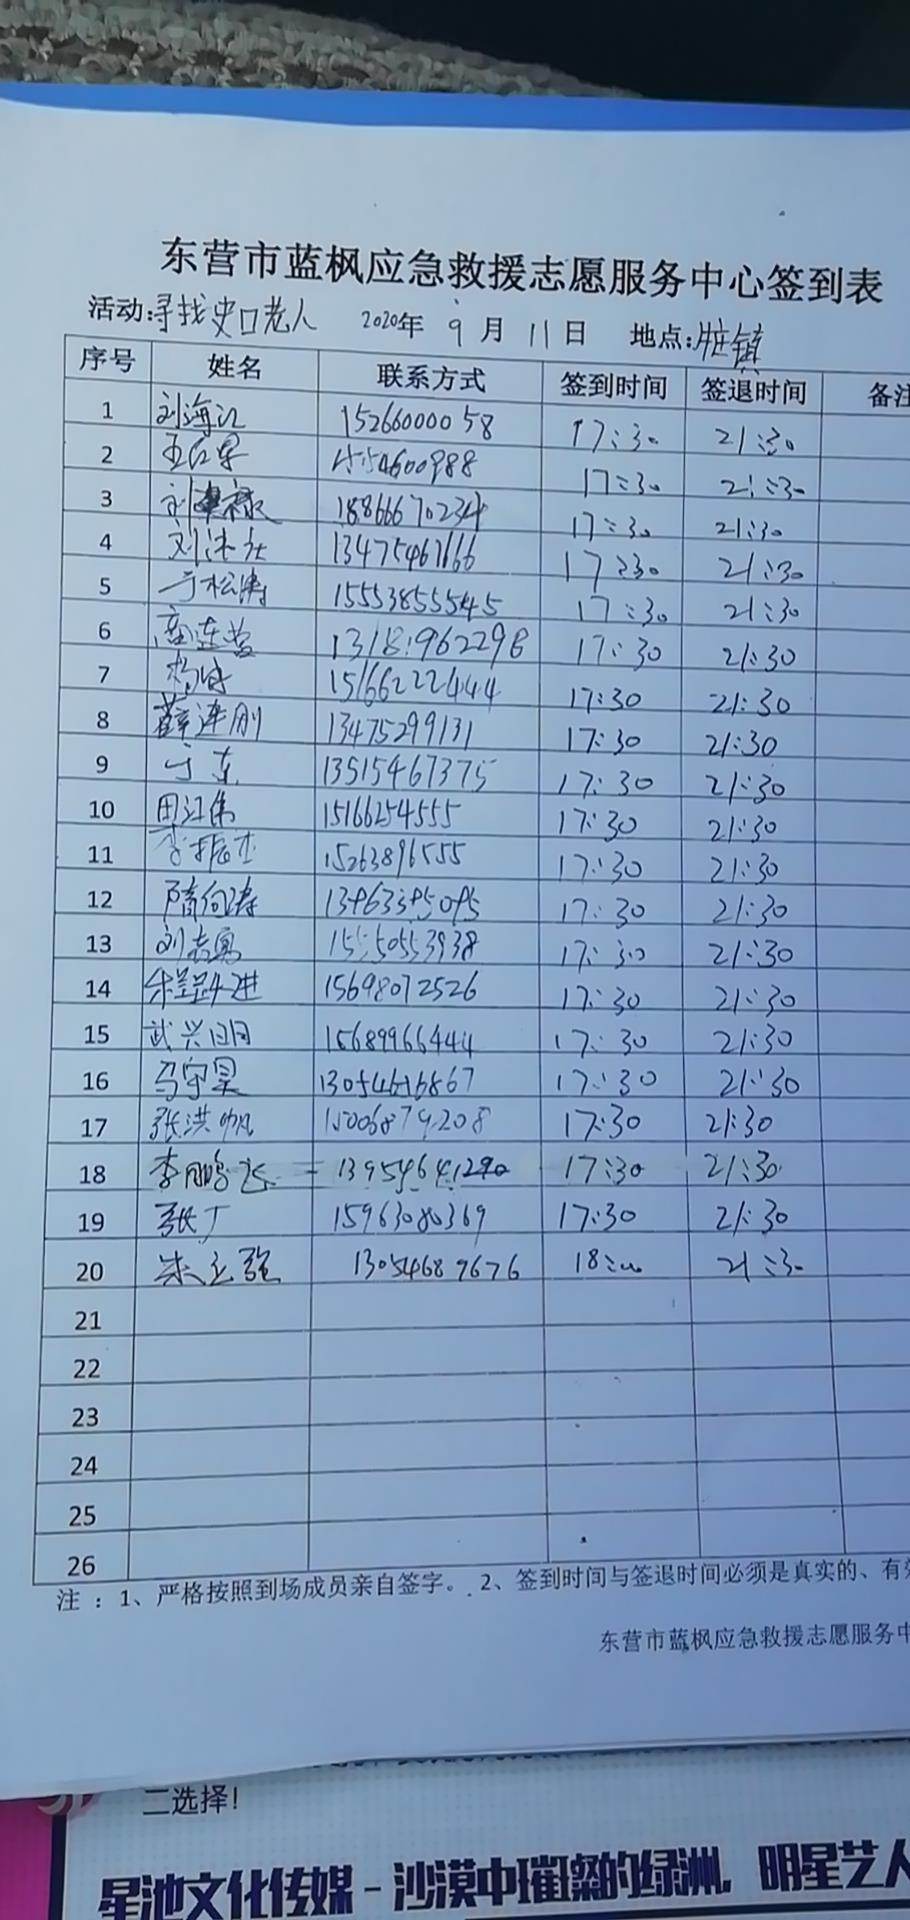 东营市蓝枫应急救援志愿服务中心签到表
活动:寻找史口老人 2020年 9月 11日 地点:
序号 姓名 联系方式 签到时间 签退时间 备注
1 刘海江 15266000058 17:30 21:30
2 17:30 21:30
3 18866670234 17:30 21:30
4 13475467666 17:30 21:30
5 于松涛 15553855545 17:30 21:30
6 13181962298 17:30 21:30
7 15166222444 17:30 21:30
8 薛连刚 13475299131 17:30 21:30
9 于东 13515467375 17:30 21:30
10 田江伟 15166254555 17:30 21:30
11 李振杰 15263896555 17:30 21:30
12 隋向涛 17:30 21:30
13 刘志勇 15550553938 17:30 21:30
14 15698072526 17:30 21:30
15 武兴明 15689966444 17:30 21:30
16 马守昊 17:30 21:30
17 张洪帆 15006874208 17:30 21:30
18 李鹏飞 17:30 21:30
19 张广 15963080369 17:30 21:30
20 朱立强 13054689676 18:00 21:30
21
22
23
24
25
26
注：1、严格按照到场成员亲自签字。 2、签到时间与签退时间必须是真实的、有效
东营市蓝枫应急救援志愿服务中
二选择!
星池文化传媒-沙漠中璀璨的绿洲, 明星艺人